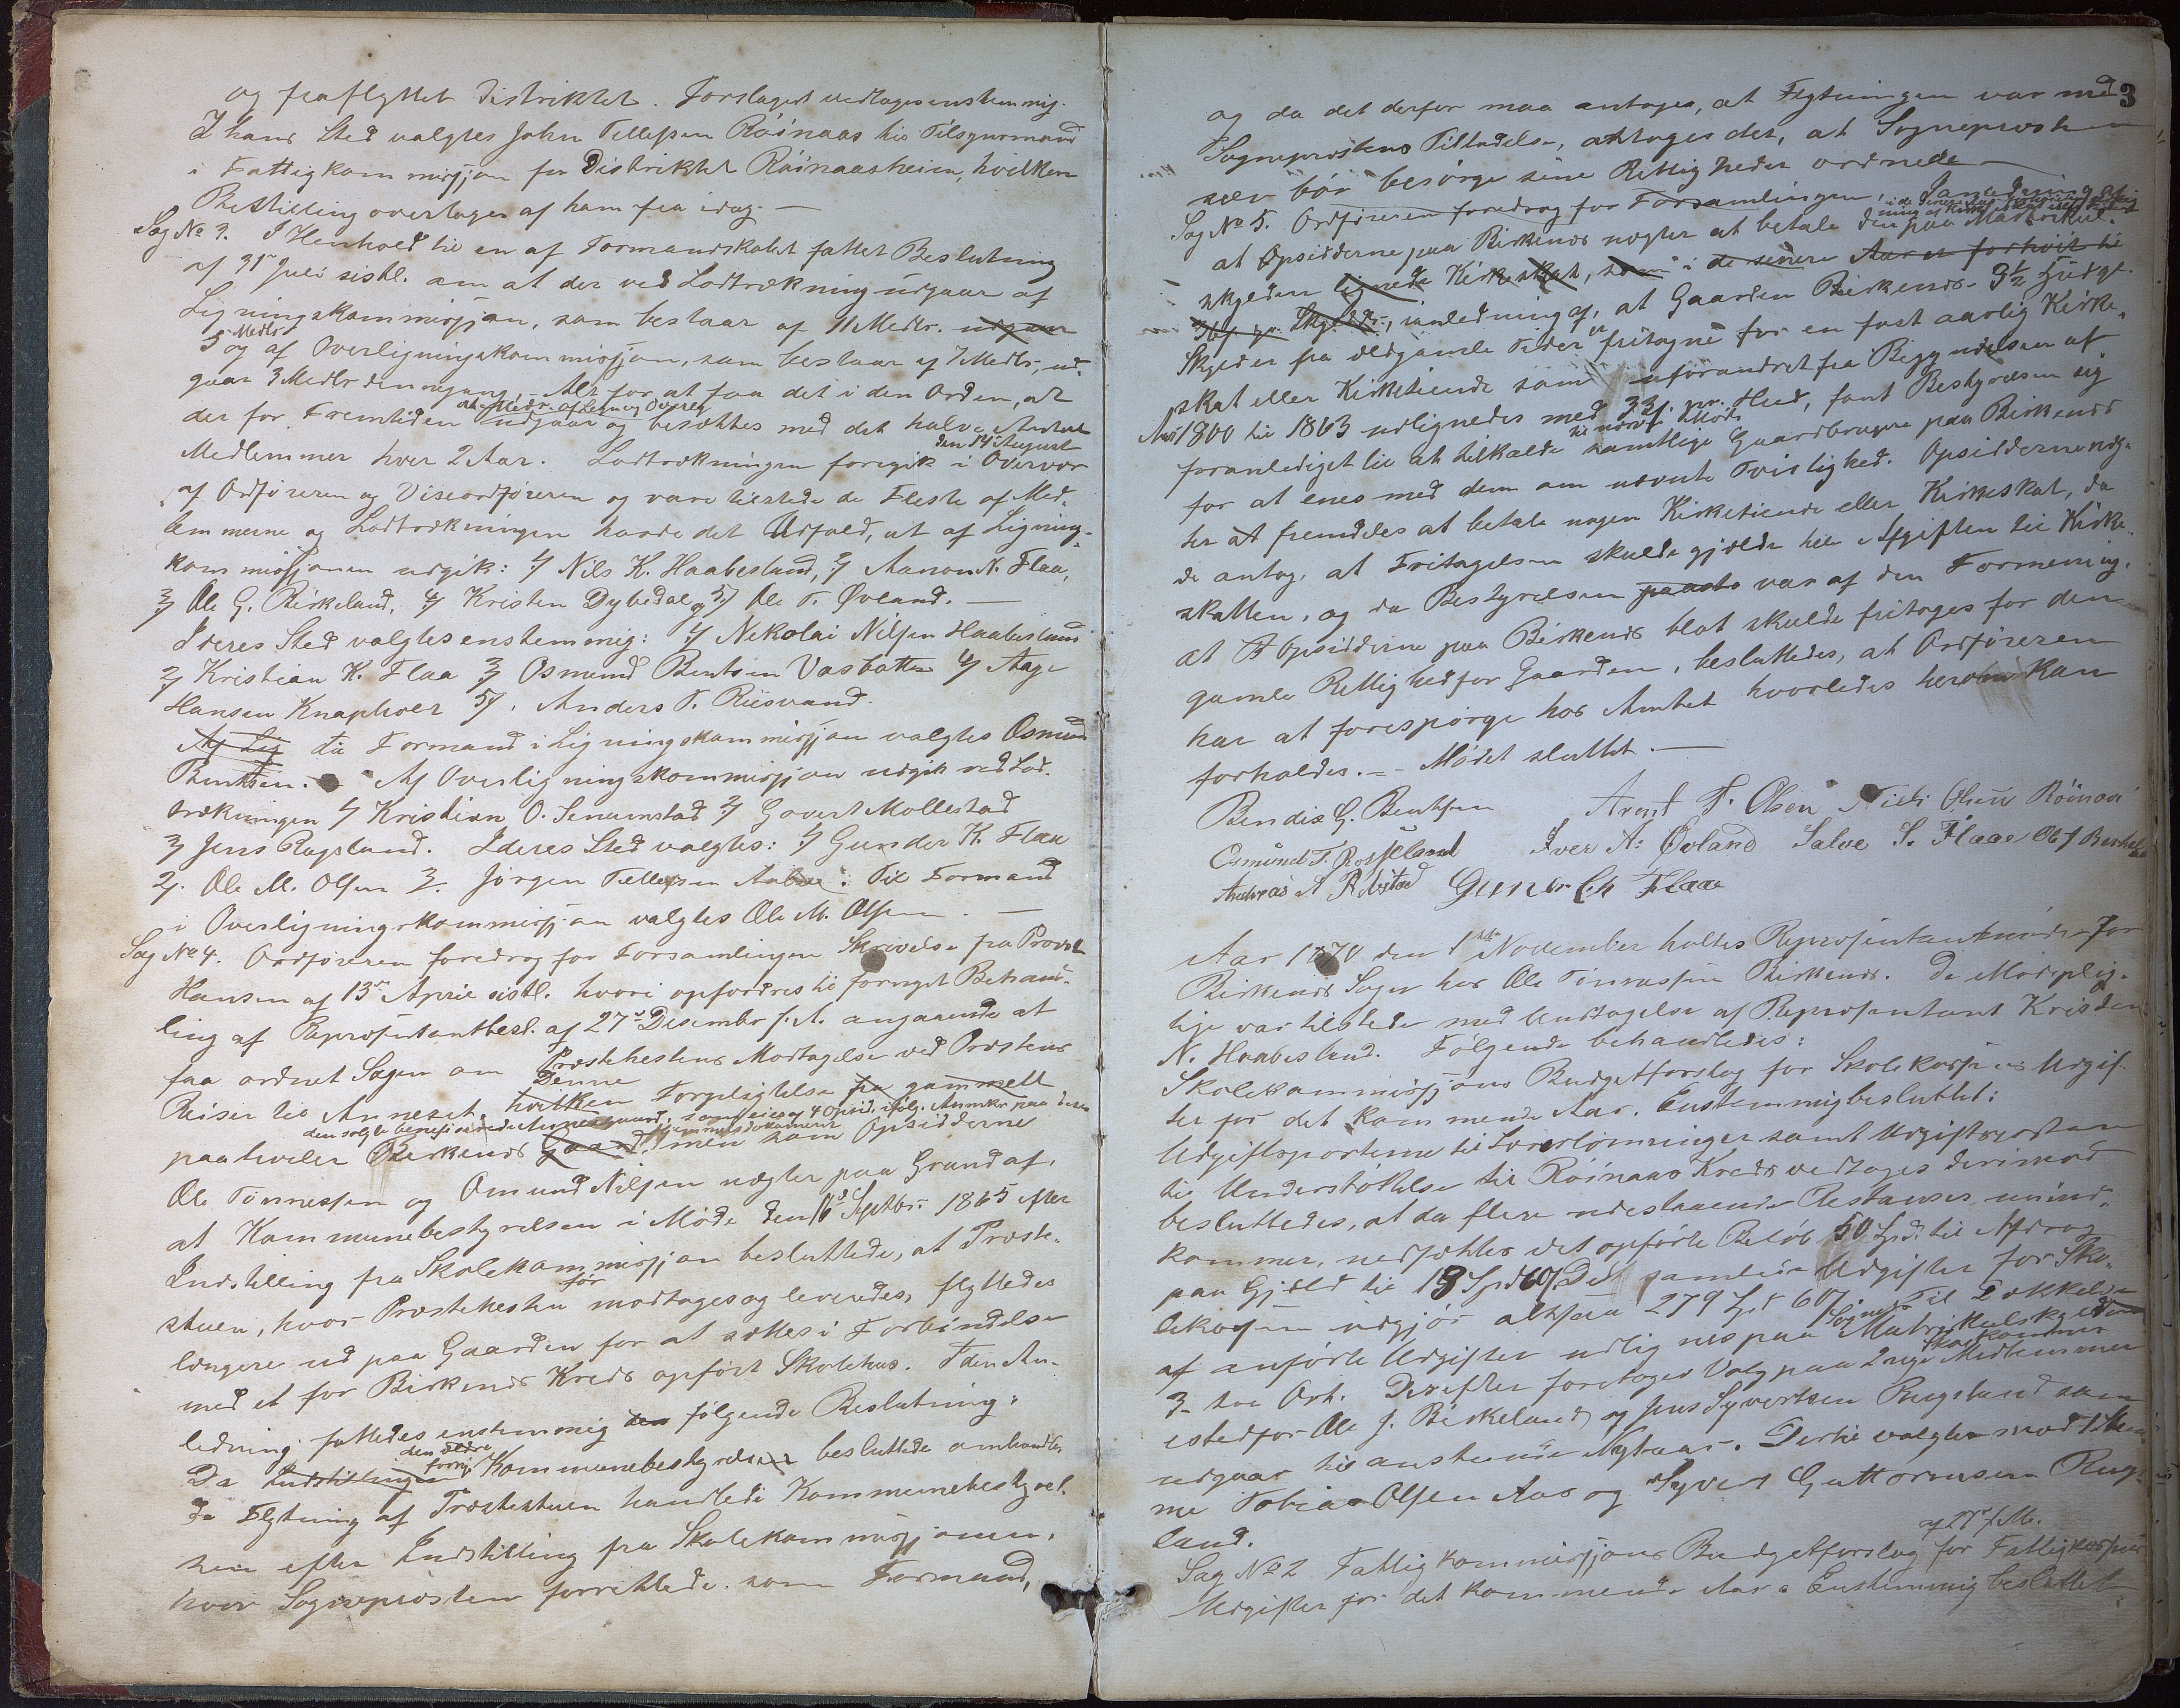 og fraflyttet Distriktet. Forslaget vedtages enstemmig.
I hans Sted valgtes John Tellefsen Röinaas til Tilsynsmand
i Fattigkommisjon for Distriktet Röinaasheien, hvilken
Bestilling overtages af ham fra idag. —
Sag No 3. I Henhold til en af Formandskabet fattet Beslutning
af 31te Juli sistl. om at der ved Lodtrækning udgaar af
Ligningskommisjon, som bestaar af 11 Medlr. udgaar
5 Medlr og af Overligningskommisjon, som bestaar af 7 Medlr, ud-
gaar 3 Medlr denne gang, Alt for at faa det i den Orden, at
der for Fremtiden udgaar og besættes med det halve Antal
Medlemmer hver 2 Aar. Lodtrækningen foregik den 14de August i Overvær
af Ordføreren og Viseordføreren og vare tilstede de Fleste af Med-
lemmerne og Lodtrækningen havde det Udfald, at af Lignings-
kommisjonen udgik: 1/ Nils K. Haabesland, 2/ Aanon N. Flaa,
3/ Ole G. Birkeland, 4/ Kristen Dybedal og 5/ Ole T. Øvland. —
I deres Sted valgtes enstemmig: 1/ Nikolai Nilsen Haabesland
2/ Kristian K. Flaa 3/ Osmund Bentsen Vasbotten 4/ Aage
Hansen Knaphoer 5/. Anders T. Riisvand.
Af Lig til Formand i Ligningskommisjon valgtes Osmund
Bentsen. Af Overligningskommisjon udgik ved Lod-
trækningen 1/ Kristian O. Senumstad 2/ Govert Mollestad
3/ Jens Rugsland. I deres Sted valgtes: 1/ Gunder K. Flaa
2/. Ole M. Olsen 3/. Jørgen Tellefsen. Til Formand
i Overligningskommisjon valgtes Ole M. Olsen. —
Sag No 4. Ordføreren foredrog for Forsamlingen Skrivelse fra Provst
Hansen af 13de April sistl. hvori opfordres til fornyet Behand-
ling af Repræsentantbesl. af 27de Desember f. A. angaaende at
faa ordnet Sagen om Præstehestens Modtagelse ved Præstens
Reiser til Annexet. hvilken Denne Forpligtelse fra gammelt
paahviler den solgte benefiserede Annexgaard Birkenes Gaard, som eies af 4 Opsid. men som Opsidderne
Ole Tönnessen og Omund Nilsen nægter paa Grund af,
at Kommunebestyrelsen i Møde den 16de Septbr. 1865 efter
Indstilling fra Skolekommisjon besluttede, at Præste-
stuen, hvor Præstehesten før modtages og leveredes, flyttedes
længere ud paa Gaarden for at sættes i Forbindelse
med et for Birkenes Kreds opført Skolehus. I den An-
ledning fattedes enstemmig den følgende Beslutning:
Da Indstillingen den ældre Kommunebestyrelse besluttede omhandle-
de Flytning af Præstestuen handlede Kommunebestyrel-
sen efter Indstilling fra Skolekommisjonen,
hvor Sognepræsten forrettede som Formand,
3
og da det derfor maa antages, at Flytningen var med
Sognepræstens Tilladelse, antages det, at Sognepræsten
selv bör besörge sine Rettigheder ordnede —
Sag No 5. Ordføreren foredrog for Forsamlingen,
at Opsidderne paa Birkenes nægter at betale den paa Matrikul-
skylden lignede Kirkeskat, som i de senere Aar er forhöiet til
pr. Skylddr., i anledning af, at Gaarden Birkenes 3½ Huds
Skyld er fra ældgamle Tider fritagne for en fast aarlig Kirke-
skat eller Kirketiende som uforandret fra Begyndelsen af
Aar 1800 til 1863 udlignedes med 33 s. pr. Hud, fant Bestyrelsen sig
foranlediget til at tilkalde til nærv. Møde samtlige Gaardbrugere paa Birkenes
for at enes med dem om nævnte Tvistighed. Opsidderne næg-
ter at fremdeles at betale nogen Kirketiende eller Kirkeskat, da
de antog, at Fritagelsen skulde gjælde hele Afgiften til Kirke-
skatten, og da Bestyrelsen paast var af den Formening,
at Opsidderne paa Birkenes blot skulde fritages for den
gamle Rettighed for Gaarden, besluttedes, at Ordføreren
har at forespörge hos Amtet hvorledes herom kan
forholdes. — Mødet sluttet. —
Bendix G. Bentsen Arent T. Olsen Niels Olsen Röinaas
Osmund T. Rosseland Iver A. Øvland Salve S. Flaae Ole J Birkeland
Andreas A Ribstad Gunder Ch Flaae
Aar 1870 den 1ste November holtes Repræsentantmöde for
Birkenes Sogn hos Ole Tönnessen Birkenes. De Mødeplig-
tige var tilstede med Undtagelse af Repræsentant Kristen
N. Haabesland. Følgende behandledes:
Skolekommisjons Budgetforslag for Skolekassens Udgif-
ter for det kommende Aar. Enstemmig besluttet:
Udgiftsposterne til Lærerlønninger samt Udgiftsposten
til Understöttelse til Röinaas Kreds vedtages derimod
besluttedes, at da flere udestaaende Restanser neml.
kommer, nedsættes det opførte Belöb 50 Spd. til Afdrag
paa Gjæld til 13 Spd 60 s. De samlede Udgifter for Sko-
lekassen udgjør altsaa 279 Spd 60 s. Til Dækkelse
af anförte Udgifter udlignes paa Sognets Matrikulskylden
3 tre Ort. Derefter foretoges Valg paa 2 nye Skolekommis. Medlemmer
istedfor Ole J. Birkeland og Jens Syvertsen Rugsland som
udgaar til anstundende Nytaar. Dertil valgtes mod 1 Stem-
me Tobias Olsen Aas og Syvert Guttormsen Rugs-
land.
Sag No 2 Fattigkommisjons Budgetforslag af 27de f. M. for Fattigkassens
Udgifter for det kommende Aar. Enstemmig besluttet: